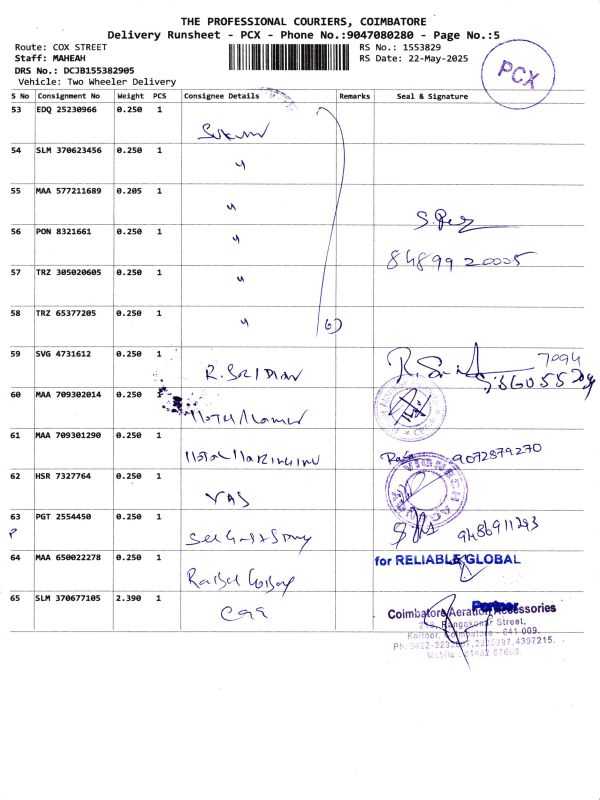 THE PROFESSIONAL COURIERS, COIMBATORE
Delivery Runsheet - PCX - Phone No.:9047080280 - Page No.:5
Route: COX STREET
Staff: MAHEAH
DRS No.: DCJB155382905
Vehicle: Two Wheeler Delivery
RS No.: 1553829
RS Date: 22-May-2025
PCX
S No Consignment No Weight PCS Consignee Details Remarks Seal & Signature
53 EDQ 25230966 0.250 1
54 SLM 370623456 0.250 1 "
55 MAA 577211689 0.205 1 "
56 PON 8321661 0.250 1 "
84899 20005
57 TRZ 305020605 0.250 1 "
58 TRZ 65377205 0.250 1 " 6)
59 SVG 4731612 0.250 1 R. SRIDHAR
60 MAA 709302014 0.250 1
61 MAA 709301290 0.250 1 9072879270
62 HSR 7327764 0.250 1 VAS
63 PGT 2554450 0.250 1 9486911293
P
64 MAA 650022278 0.250 1 for RELIABLE GLOBAL
Partner
65 SLM 370677105 2.390 1 Caa
Coimbatore Aeration Accessories
Street,
Kattoor, Coimbatore - 641 009.